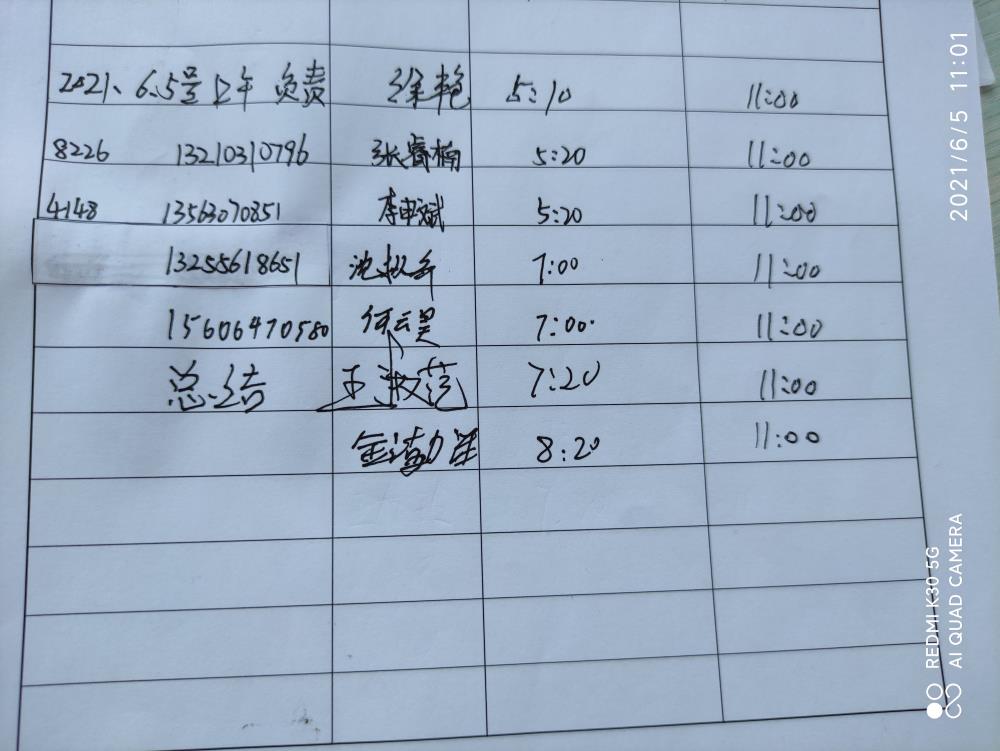 2021、6.5号上午 负责 徐艳 5:10 11:00
8226 13210310796 张睿楠 5:20 11:00
4148 13563070851 李申斌 5:20 11:00
13255618651 7:00 11:00
15606470580 何云昊 7:00 11:00
总结 王淑范 7:20 11:00
8:20 11:00
2021/6/5 11:01
REDMI K30 5G
AI QUAD CAMERA